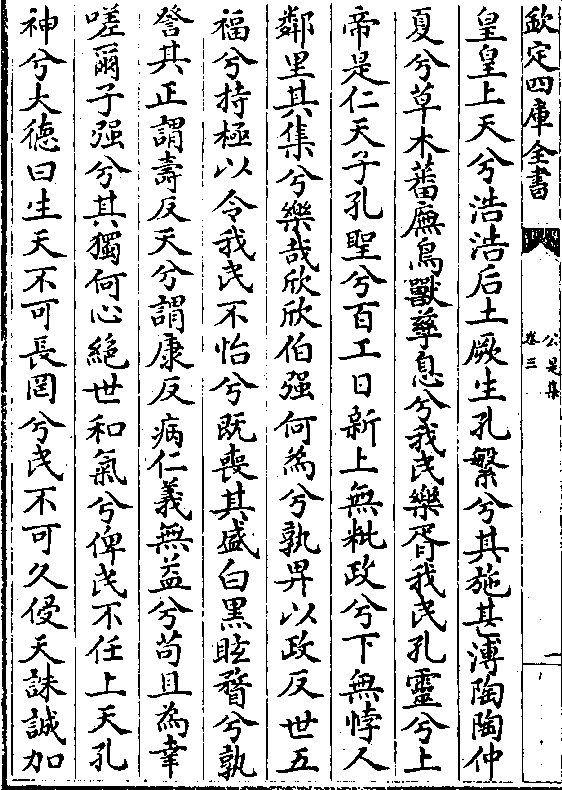 欽定四庫全書
公是集
卷三
一
皇皇上天兮浩浩后土厥生孔繁兮其施甚溥陶陶仲
夏兮草木蕃廡鳥獸孳息兮我民樂胥我民孔靈兮上
帝是仁天子孔聖兮百工日新上無粃政兮下無悖人
鄰里其集兮樂哉欣欣伯强何為兮孰畀以政反世五
福兮持極以令我民不怡兮既喪其盛白黑眩瞀兮孰
詧其正謂壽反夭兮謂康反病仁義無益兮苟且為幸
嗟爾子强兮其獨何心絶世和氣兮俾民不任上天孔
神兮大德曰生天不可長罔兮民不可久侵天誅誠加